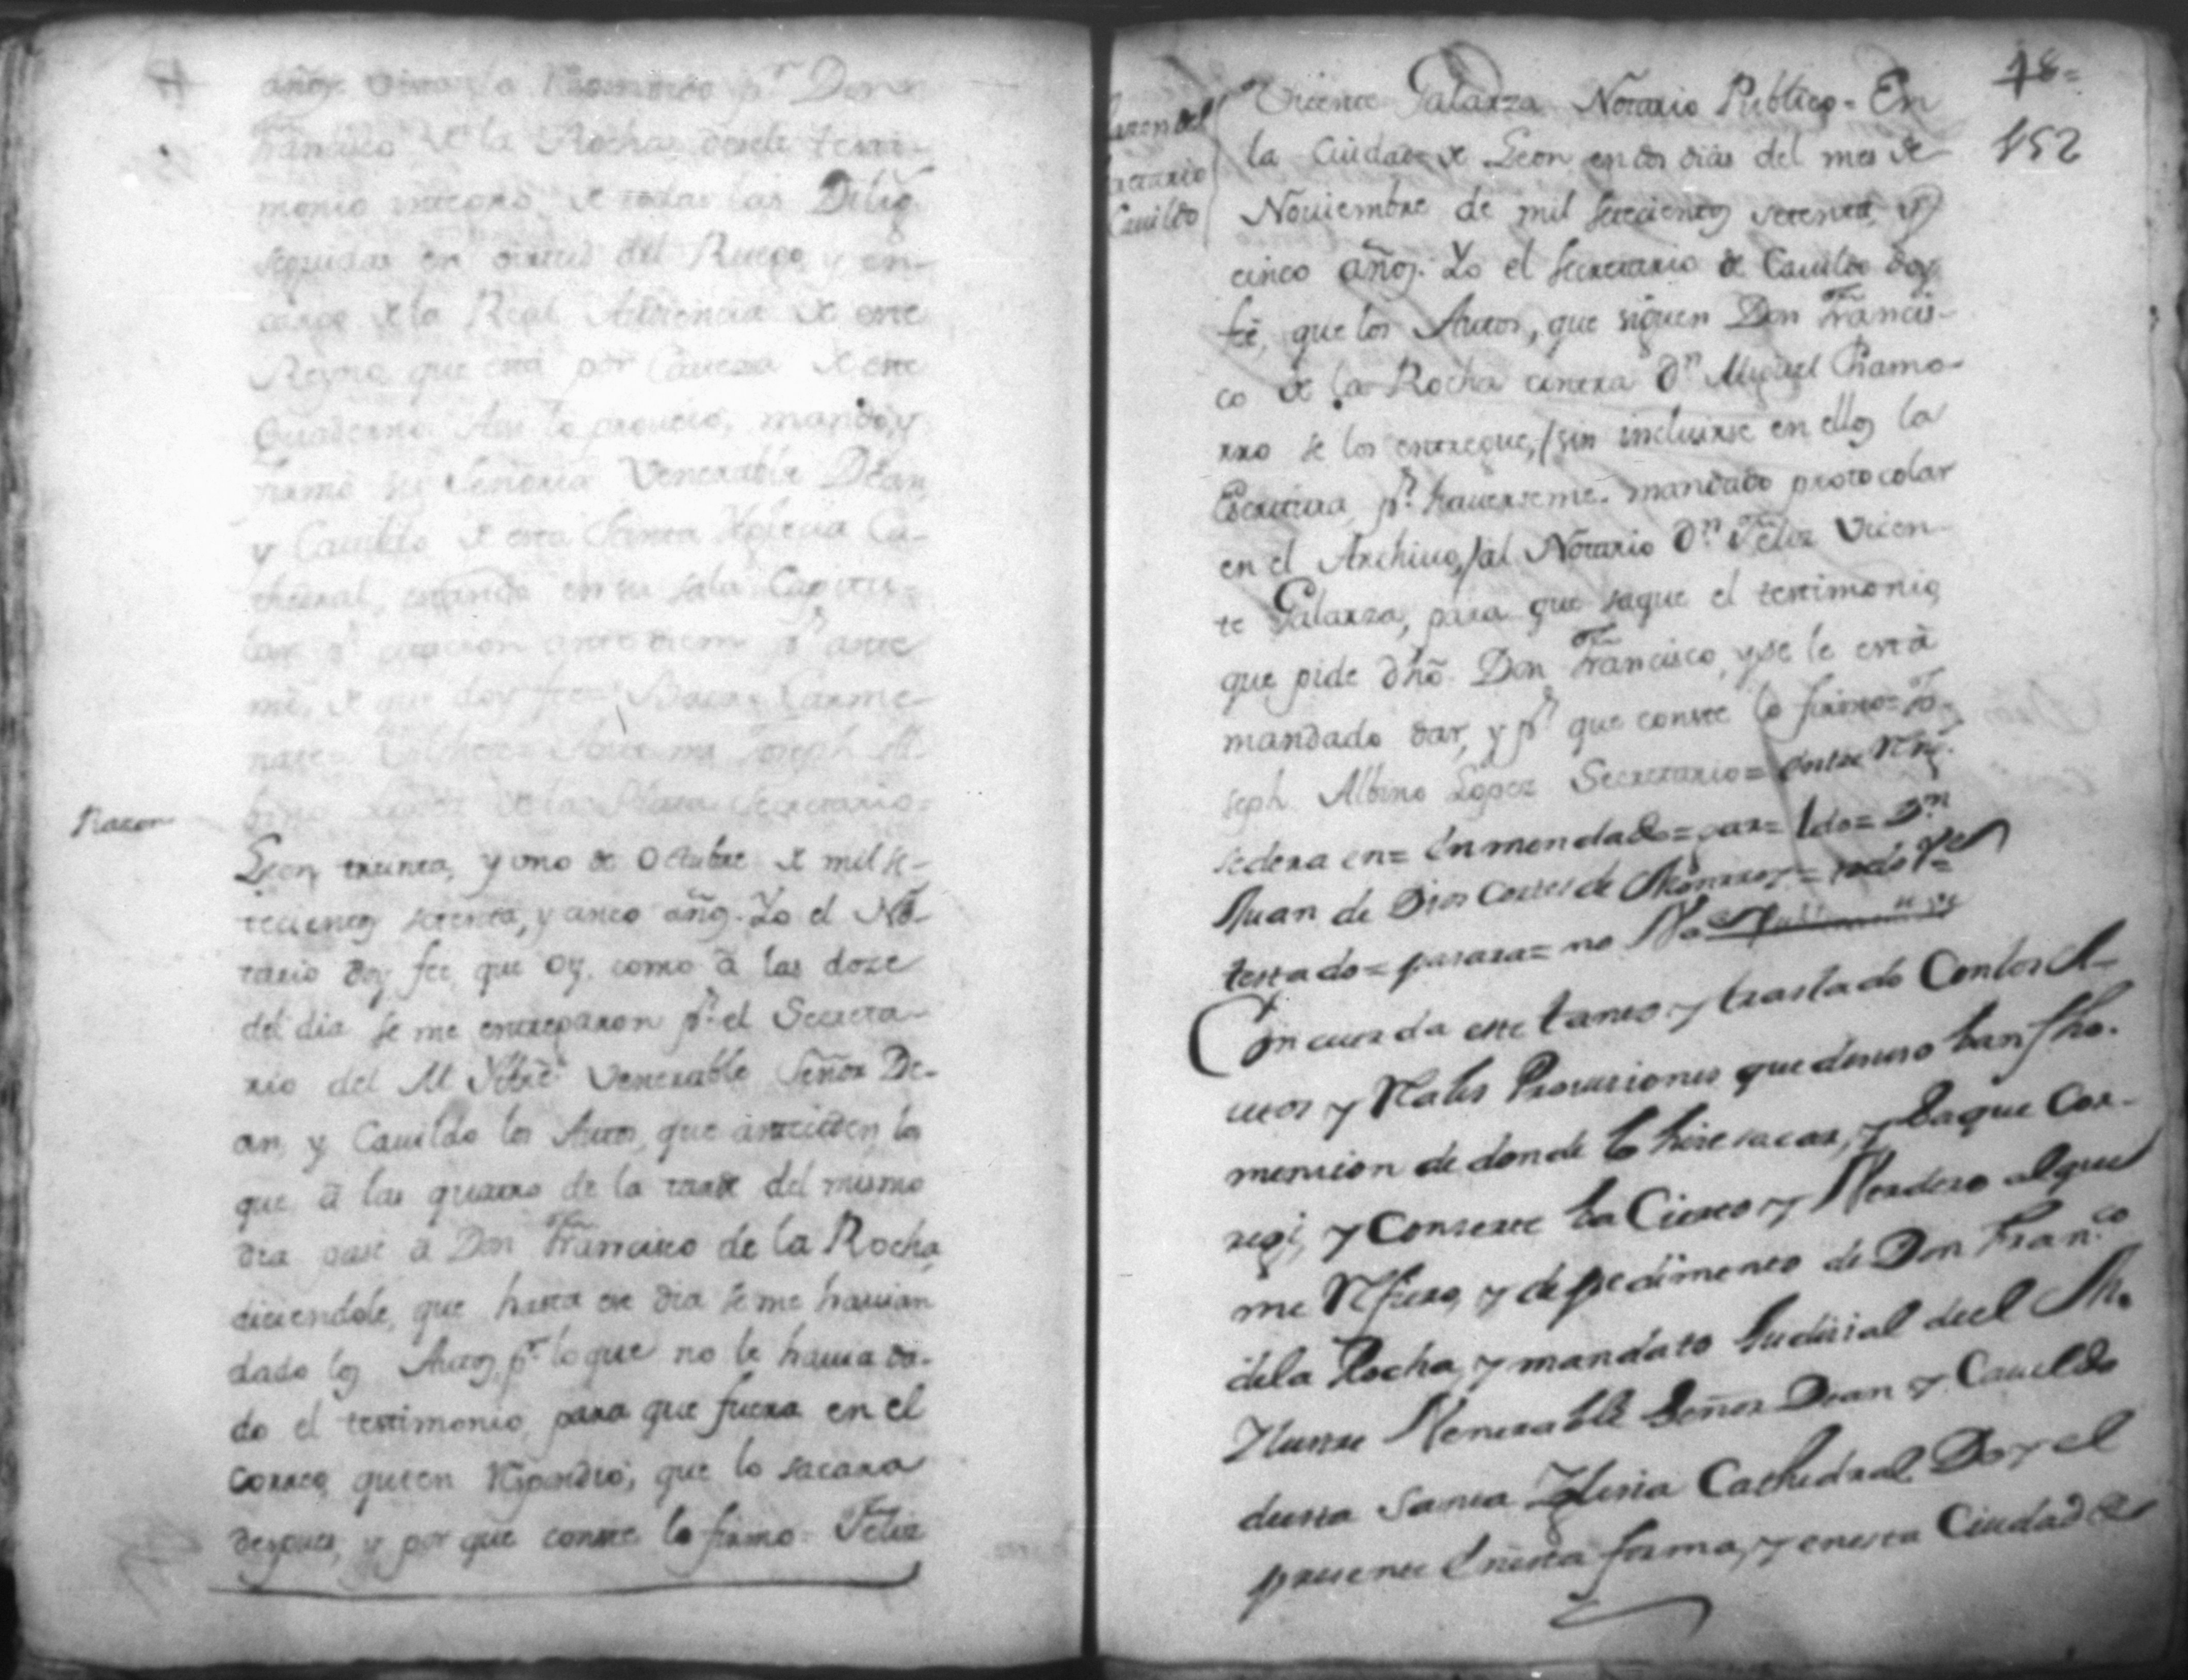 años Vista la p.r Don
Francisco de la Rocha, desele testi-
monio integro de todas las Dilig.
seguidas en virtud del Ruego, y en-
cargo de la Real Audiencia de este
Reyno, que está por Caveza de este
Quaderno. Asi lo proveió, mandó, y
firmó su Señoria Venerable Dean,
y Cavildo de esta Santa Yglecia Ca-
thedral, estando en su sala Capitu-
lar p.r citacion antediem p.r ante
mi, de que doy fee=
Ante mi Joseph Al-
bino Lopez de la Plata Secretario=
Razon
Leon, treinta, y uno de Octubre de mil se-
tecientos setenta, y cinco años. Yo el No-
tario doy fee, que oy, como á las doze
del dia se me entregaron p.r el Secreta-
rio del M. Yltre Venerable Señor De-
an, y Cavildo los Autos, que anteceden, los
que á las quatro de la tarde del mismo
dia pasé á Don Francisco de la Rocha,
diciendole, que hasta ese dia se me havian
dado los Autos, p.r lo que no le havia da-
do el testimonio, para que fuera en el
Correo, quien respondió, que lo sacara
despues, y por que conste lo firmo= Feliz
18=
152
Razon del
Secretario
Cavildo
Vicente Galarza Notario Publico= En
la Ciudad de Leon en dos dias del mes de
Noviembre de mil setecientos setenta, y
cinco años. Yo el Secretario de Cavildo doy
fé, que los Autos, que siguen Don Francis-
co de la Rocha contra D.n Miguel Chamo-
rro se los entregue, (sin incluirse en ellos la
Escritura, p.r haverseme mandado protocolar
en el Archivo,) al Notario D.n Feliz Vicen-
te Galarza, para que saque el testimonio,
que pide dho. Don Francisco, y se le está
mandado dar, y p.a que conste lo firmo= Jo-
seph Albino Lopez Secretario= entre Rns.
sedera en= Enmendado= par= Ldo= D.n
Juan de Dios Cortes de Monrroy= todo Ve
testado= parara= no Va
Concuerda este tanto y traslado Con los A-
utos y Rales Provisiones que de suso ban fho.
mension de donde lo hise sacar, y saque Cor-
regi, y Conserte ba Cierto y Verdero al que
me Refiero, y de pedimento de Don Fran.co
dela Rocha, y mandato Judisial deel M.
Ylustre Venerable Señor Dean y Cavildo
de esta Santa Yglesia Cathedral. Doy el
presente Enesta forma, y enesta Ciudad de